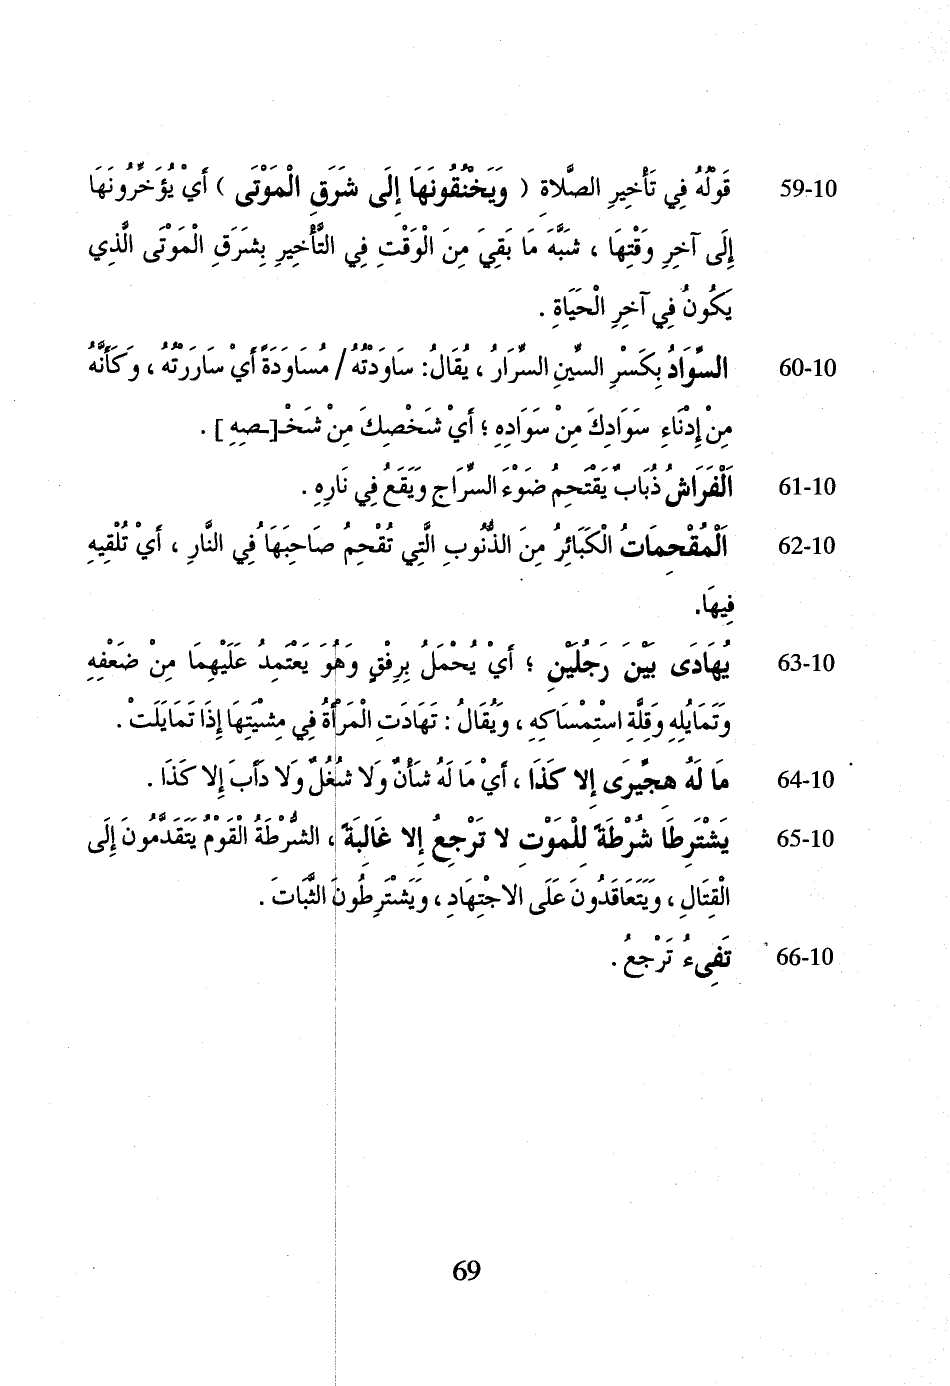 59-10 قَوْلُهُ فِي تَأْخِيرِ الصَّلاَةِ ( وَيَخْنُقُونَهَا إِلَى شَرَقِ الْمَوْتَى ) أَيْ يُؤَخِّرُونَهَا
إِلَى آخِرِ وَقْتِهَا ، شَبَّهَ مَا بَقِيَ مِنَ الْوَقْتِ فِي التَّأْخِيرِ بِشَرَقِ الْمَوْتَى الَّذِي
يَكُونُ فِي آخِرِ الْحَيَاةِ .
60-10 السِّوَادُ بِكَسْرِ السِّينِ السِّرَارُ ، يُقَالُ: سَاوَدْتُهُ / مُسَاوَدَةً أَيْ سَارَرْتُهُ ، وَكَأَنَّهُ
مِنْ إِدْنَاءِ سَوَادِكَ مِنْ سَوَادِهِ ؛ أَيْ شَخْصِكَ مِنْ شَخْـ[ـصِهِ ] .
61-10 اَلْفَرَاشُ ذُبَابٌ يَقْتَحِمُ ضَوْءَ السِّرَاجِ وَيَقَعُ فِي نَارِهِ .
62-10 اَلْمُقْحِمَاتُ الْكَبَائِرُ مِنَ الذُّنُوبِ الَّتِي تُقْحِمُ صَاحِبَهَا فِي النَّارِ ، أَيْ تُلْقِيهِ
فِيهَا.
63-10 يُهَادَى بَيْنَ رَجُلَيْنِ ؛ أَيْ يُحْمَلُ بِرِفْقٍ وَهُوَ يَعْتَمِدُ عَلَيْهِمَا مِنْ ضَعْفِهِ
وَتَمَايُلِهِ وَقِلَّةِ اسْتِمْسَاكِهِ ، وَيُقَالُ : تَهَادَتِ الْمَرْأَةُ فِي مِشْيَتِهَا إِذَا تَمَايَلَتْ .
64-10 مَا لَهُ هِجِّيرَى إِلا كَذَا ، أَيْ مَا لَهُ شَأْنٌ وَلا شُغُلٌ وَلا دَأَبَ إِلا كَذَا .
65-10 يَشْتَرِطَا شُرْطَةً لِلْمَوْتِ لا تَرْجِعُ إِلا غَالِبَةً ، الشُّرْطَةُ الْقَوْمُ يَتَقَدَّمُونَ إِلَى
الْقِتَالِ ، وَيَتَعَاقَدُونَ عَلَى الاجْتِهَادِ ، وَيَشْتَرِطُونَ الثَّبَاتَ .
66-10 تَفِيءُ تَرْجِعُ .
69